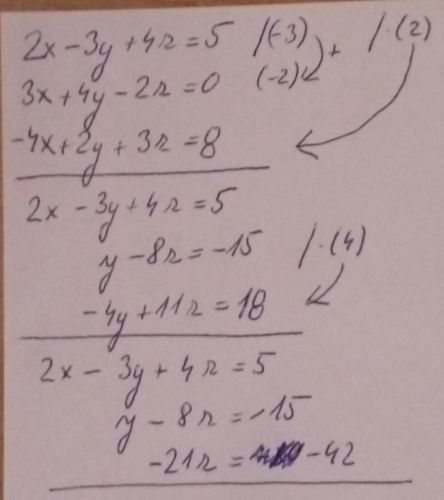 2x - 3y + 4z = 5 /(-3) + / · (2)
3x + 4y - 2z = 0 (-2)
-4x + 2y + 3z = 8
2x - 3y + 4z = 5
y - 8z = -15 / · (4)
-4y + 11z = 18
2x - 3y + 4z = 5
y - 8z = -15
-21z = -42